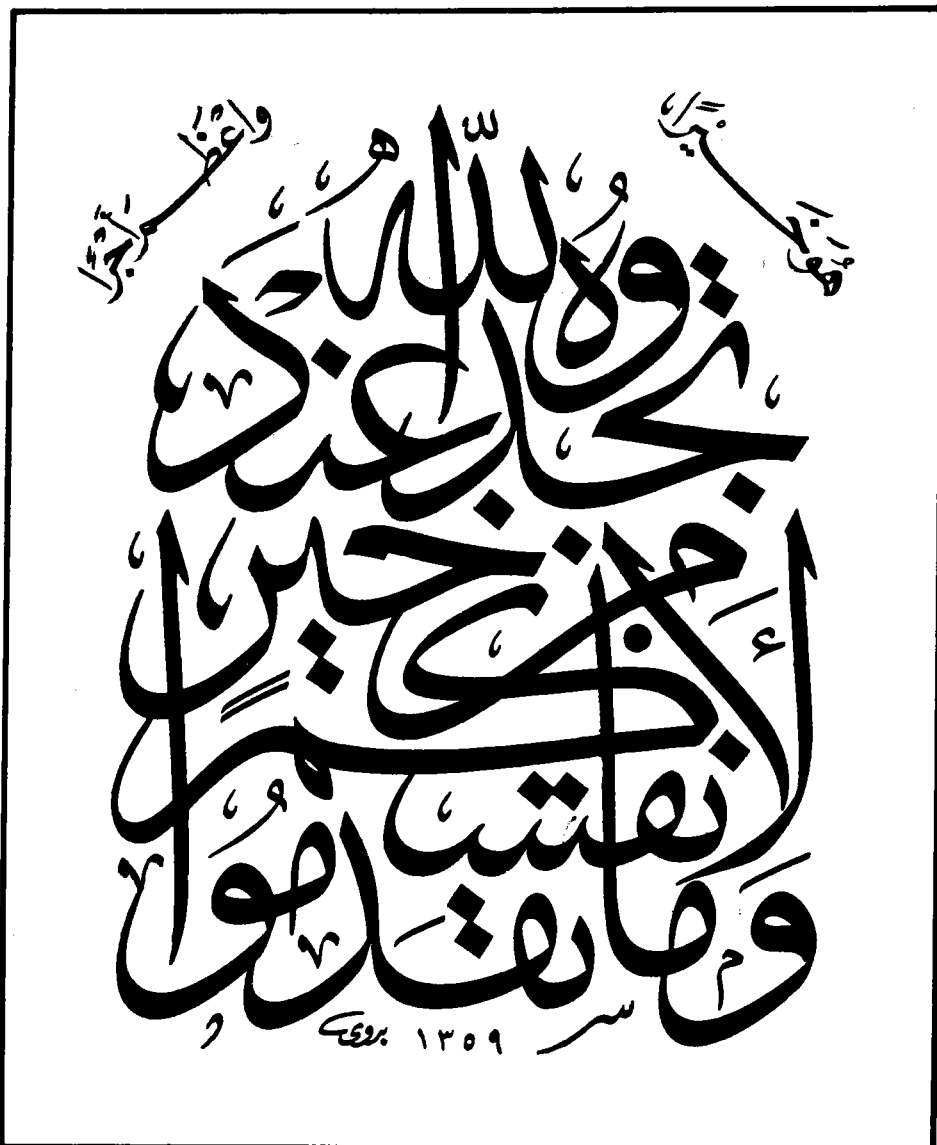 وَمَا تُقَدِّمُوا
لِأَنْفُسِكُمْ
مِنْ خَيْرٍ
تَجِدُوهُ عِنْدَ اللَّهِ
هُوَ خَيْرًا
وَأَعْظَمَ أَجْرًا
١٣٥٩